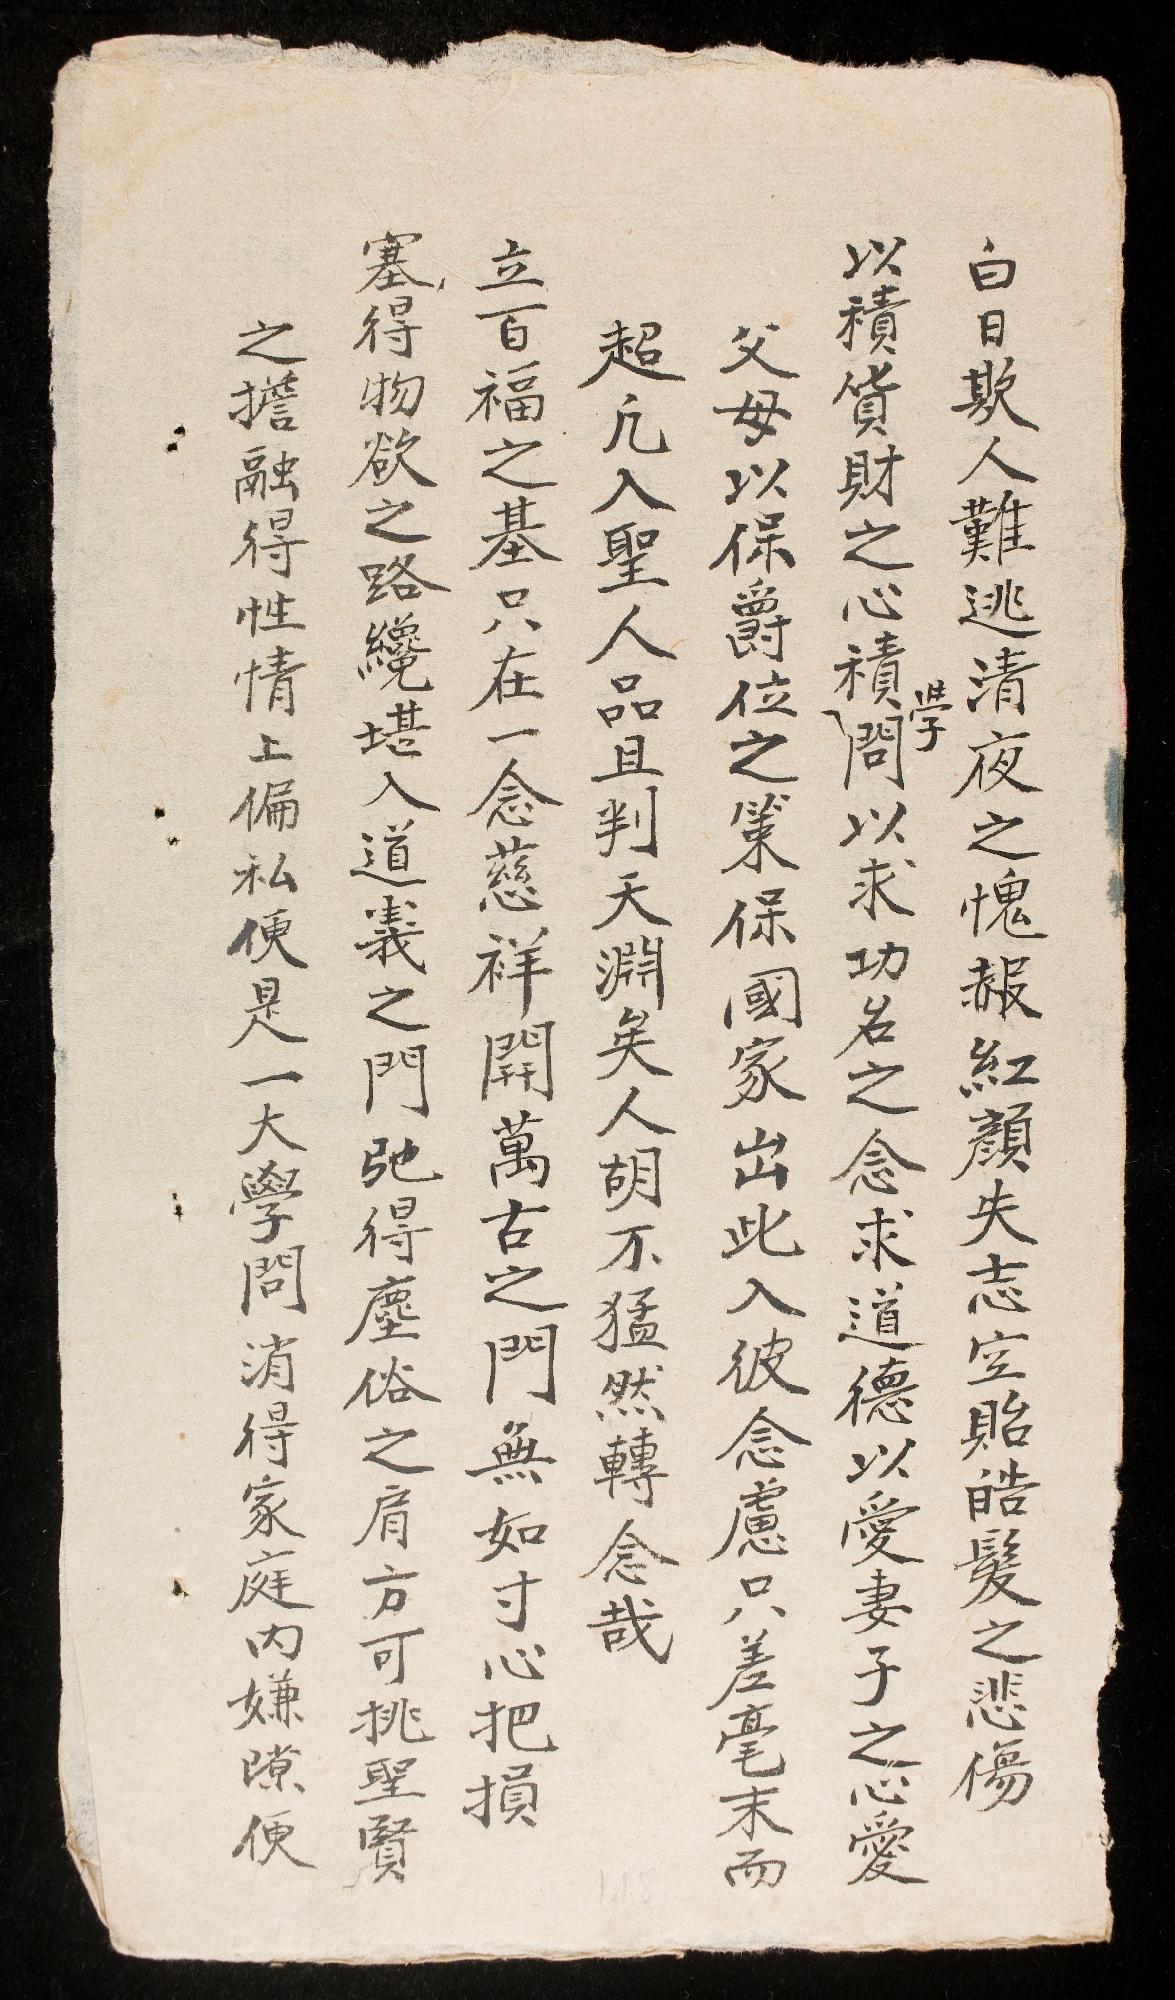 白日欺人難逃清夜之愧赧紅顏失志空貽皓髮之悲傷
以積貨財之心積學問以求功名之念求道德以愛妻子之心愛
父母以保爵位之策保國家出此入彼念慮只差毫末而
超凡入聖人品且判天淵矣人胡不猛然轉念哉
立百福之基只在一念慈祥開萬古之門無如寸心把損
塞得物欲之路纔堪入道義之門弛得塵俗之肩方可挑聖賢
之擔融得性情上偏私便是一大學問消得家庭內嫌隙便
118